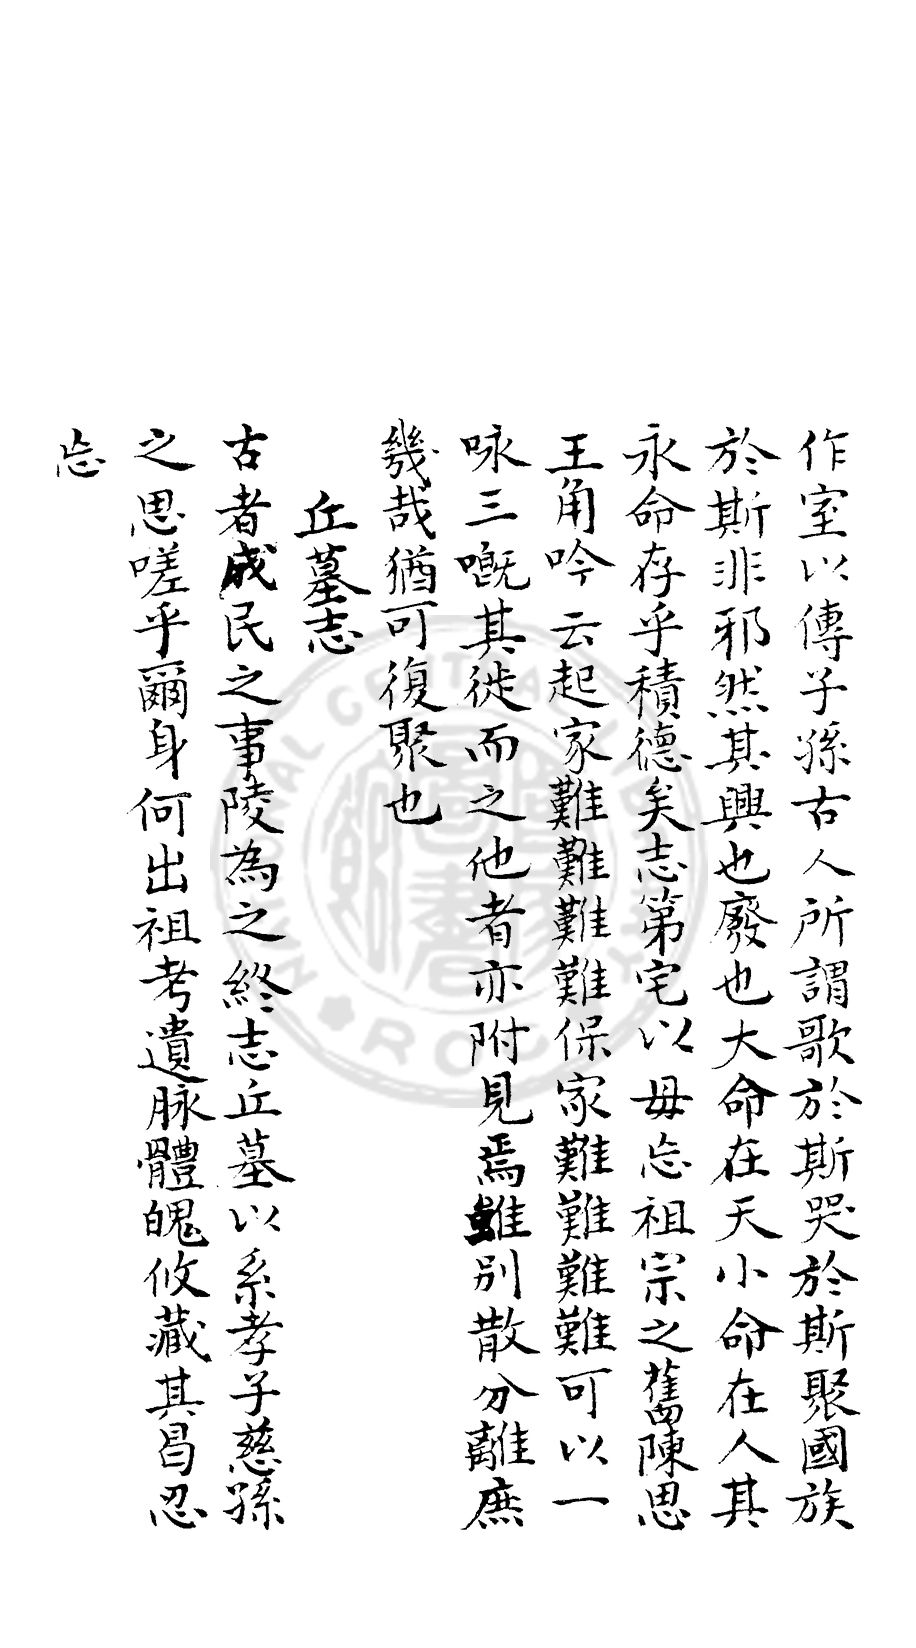 作室以傳子孫古人所謂歌於斯哭於斯聚國族
於斯非邪然其興也廢也大命在天小命在人其
永命存乎積德矣志第宅以毋忘祖宗之舊陳思
王角吟云起家難難難難保家難難難難可以一
咏三嘅其徙而之他者亦附見焉雖別散分離庶
幾哉猶可復聚也
丘墓志
古者成民之事陵為之終志丘墓以系孝子慈孫
之思嗟乎爾身何出祖考遺脉體魄攸藏其曷忍
忘
NATIONAL CENTRAL LIBRARY
R.O.C.